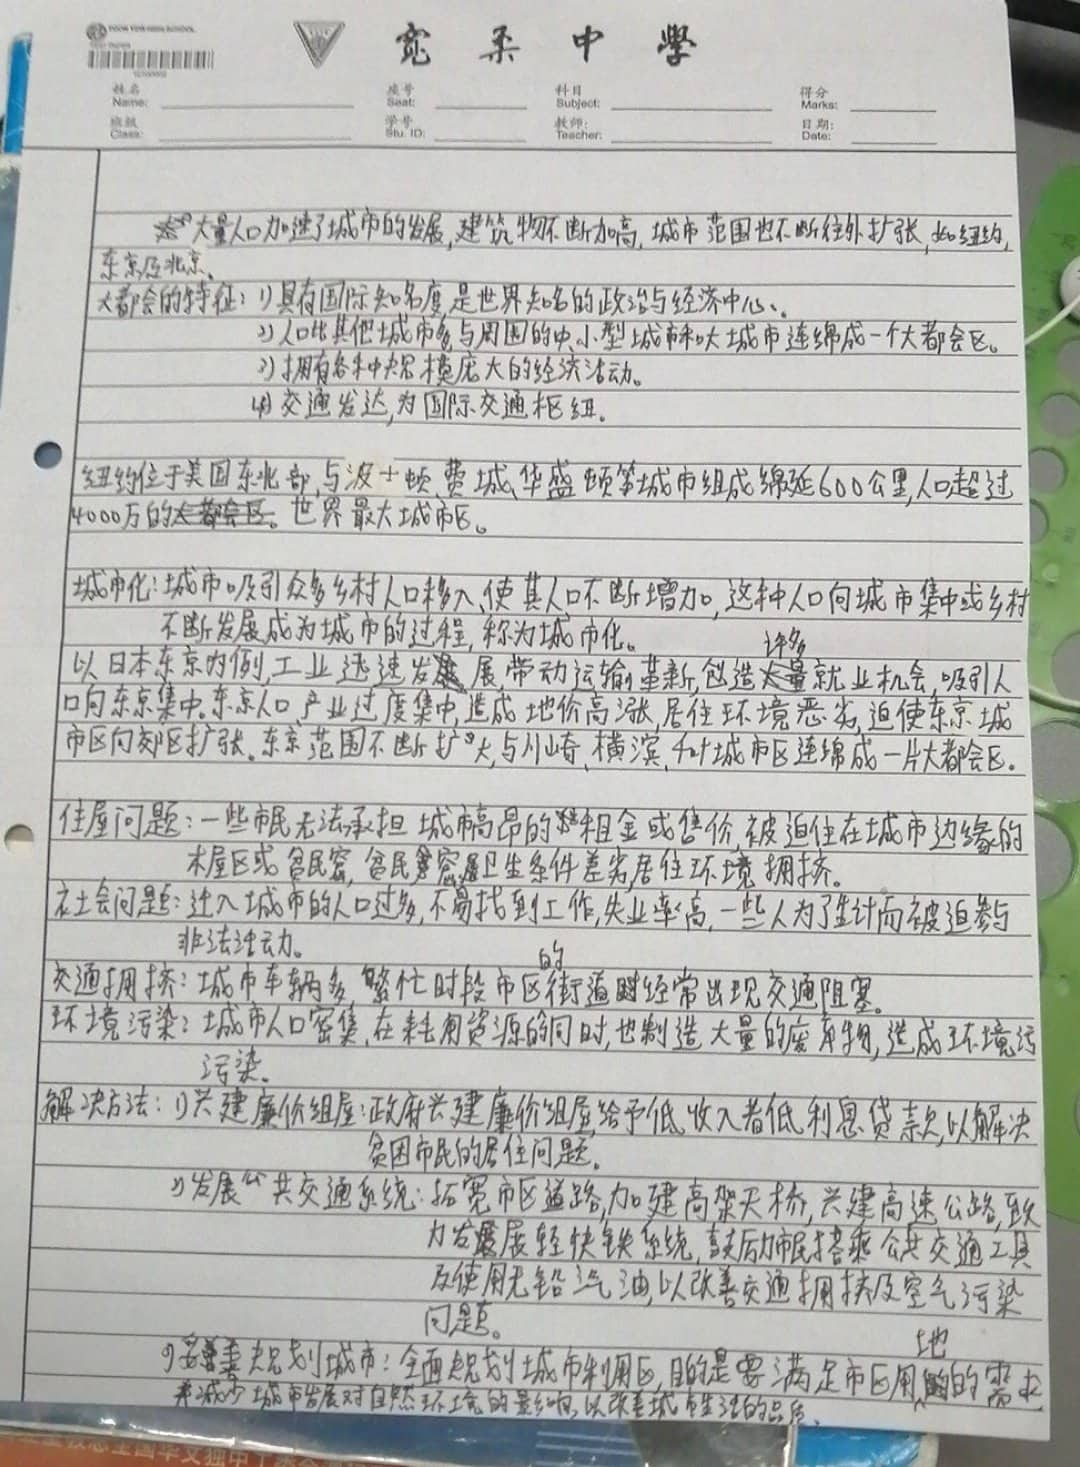 FOON YEW HIGH SCHOOL
寬柔中學
姓名 Name: 座号 Seat: 科目 Subject: 得分 Marks:
班级 Class: 学号 Stu. ID: 教师: Teacher: 日期: Date:
大量人口加速了城市的发展,建筑物不断加高,城市范围也不断往外扩张,如纽约,
东京及北京。
大都会的特征:1)具有国际知名度,是世界知名的政治与经济中心、。
2)人口比其他城市多与周围的中、小型城市和大城市连绵成一个大都会区。
3)拥有各种规模庞大的经济活动。
4)交通发达,为国际交通枢纽。
纽约位于美国东北部,与波士顿、费城、华盛顿等城市组成绵延600公里,人口超过
4000万的大都会区。世界最大城市区。
城市化:城市吸引众多乡村人口移入,使其人口不断增加,这种人口向城市集中或乡村
不断发展成为城市的过程,称为城市化。
许多
以日本东京为例,工业迅速发展,带动运输革新,创造大量就业机会,吸引人
口向东京集中。东京人口、产业过度集中,造成地价高涨,居住环境恶劣,迫使东京城
市区向郊区扩张。东京范围不断扩大,与川崎、横滨、千叶城市区连绵成一片大都会区。
住屋问题:一些市民无法承担城市高昂的租金或售价,被迫住在城市边缘的
木屋区或贫民窟,贫民窟卫生条件差劣,居住环境拥挤。
社会问题:迁入城市的人口过多,不易找到工作,失业率高,一些人为了生计而被迫参与
非法活动。
的
交通拥挤:城市车辆多,繁忙时段市区街道时经常出现交通阻塞。
环境污染:城市人口密集,在耗用资源的同时,也制造大量的废弃物,造成环境污
污染。
解决方法:1)兴建廉价组屋:政府兴建廉价组屋,给予低收入者低利息贷款,以解决
贫困市民的居住问题。
2)发展公共交通系统:拓宽市区道路,加建高架天桥,兴建高速公路,致
力发展轻快铁系统,鼓励市民搭乘公共交通工具
及使用无铅汽油,以改善交通拥挤及空气污染
问题。
地
3)妥善规划城市:全面规划城市利用区,目的是要满足市区用的的需求
并减少城市发展对自然环境的影响,以改善城市生活的品质。